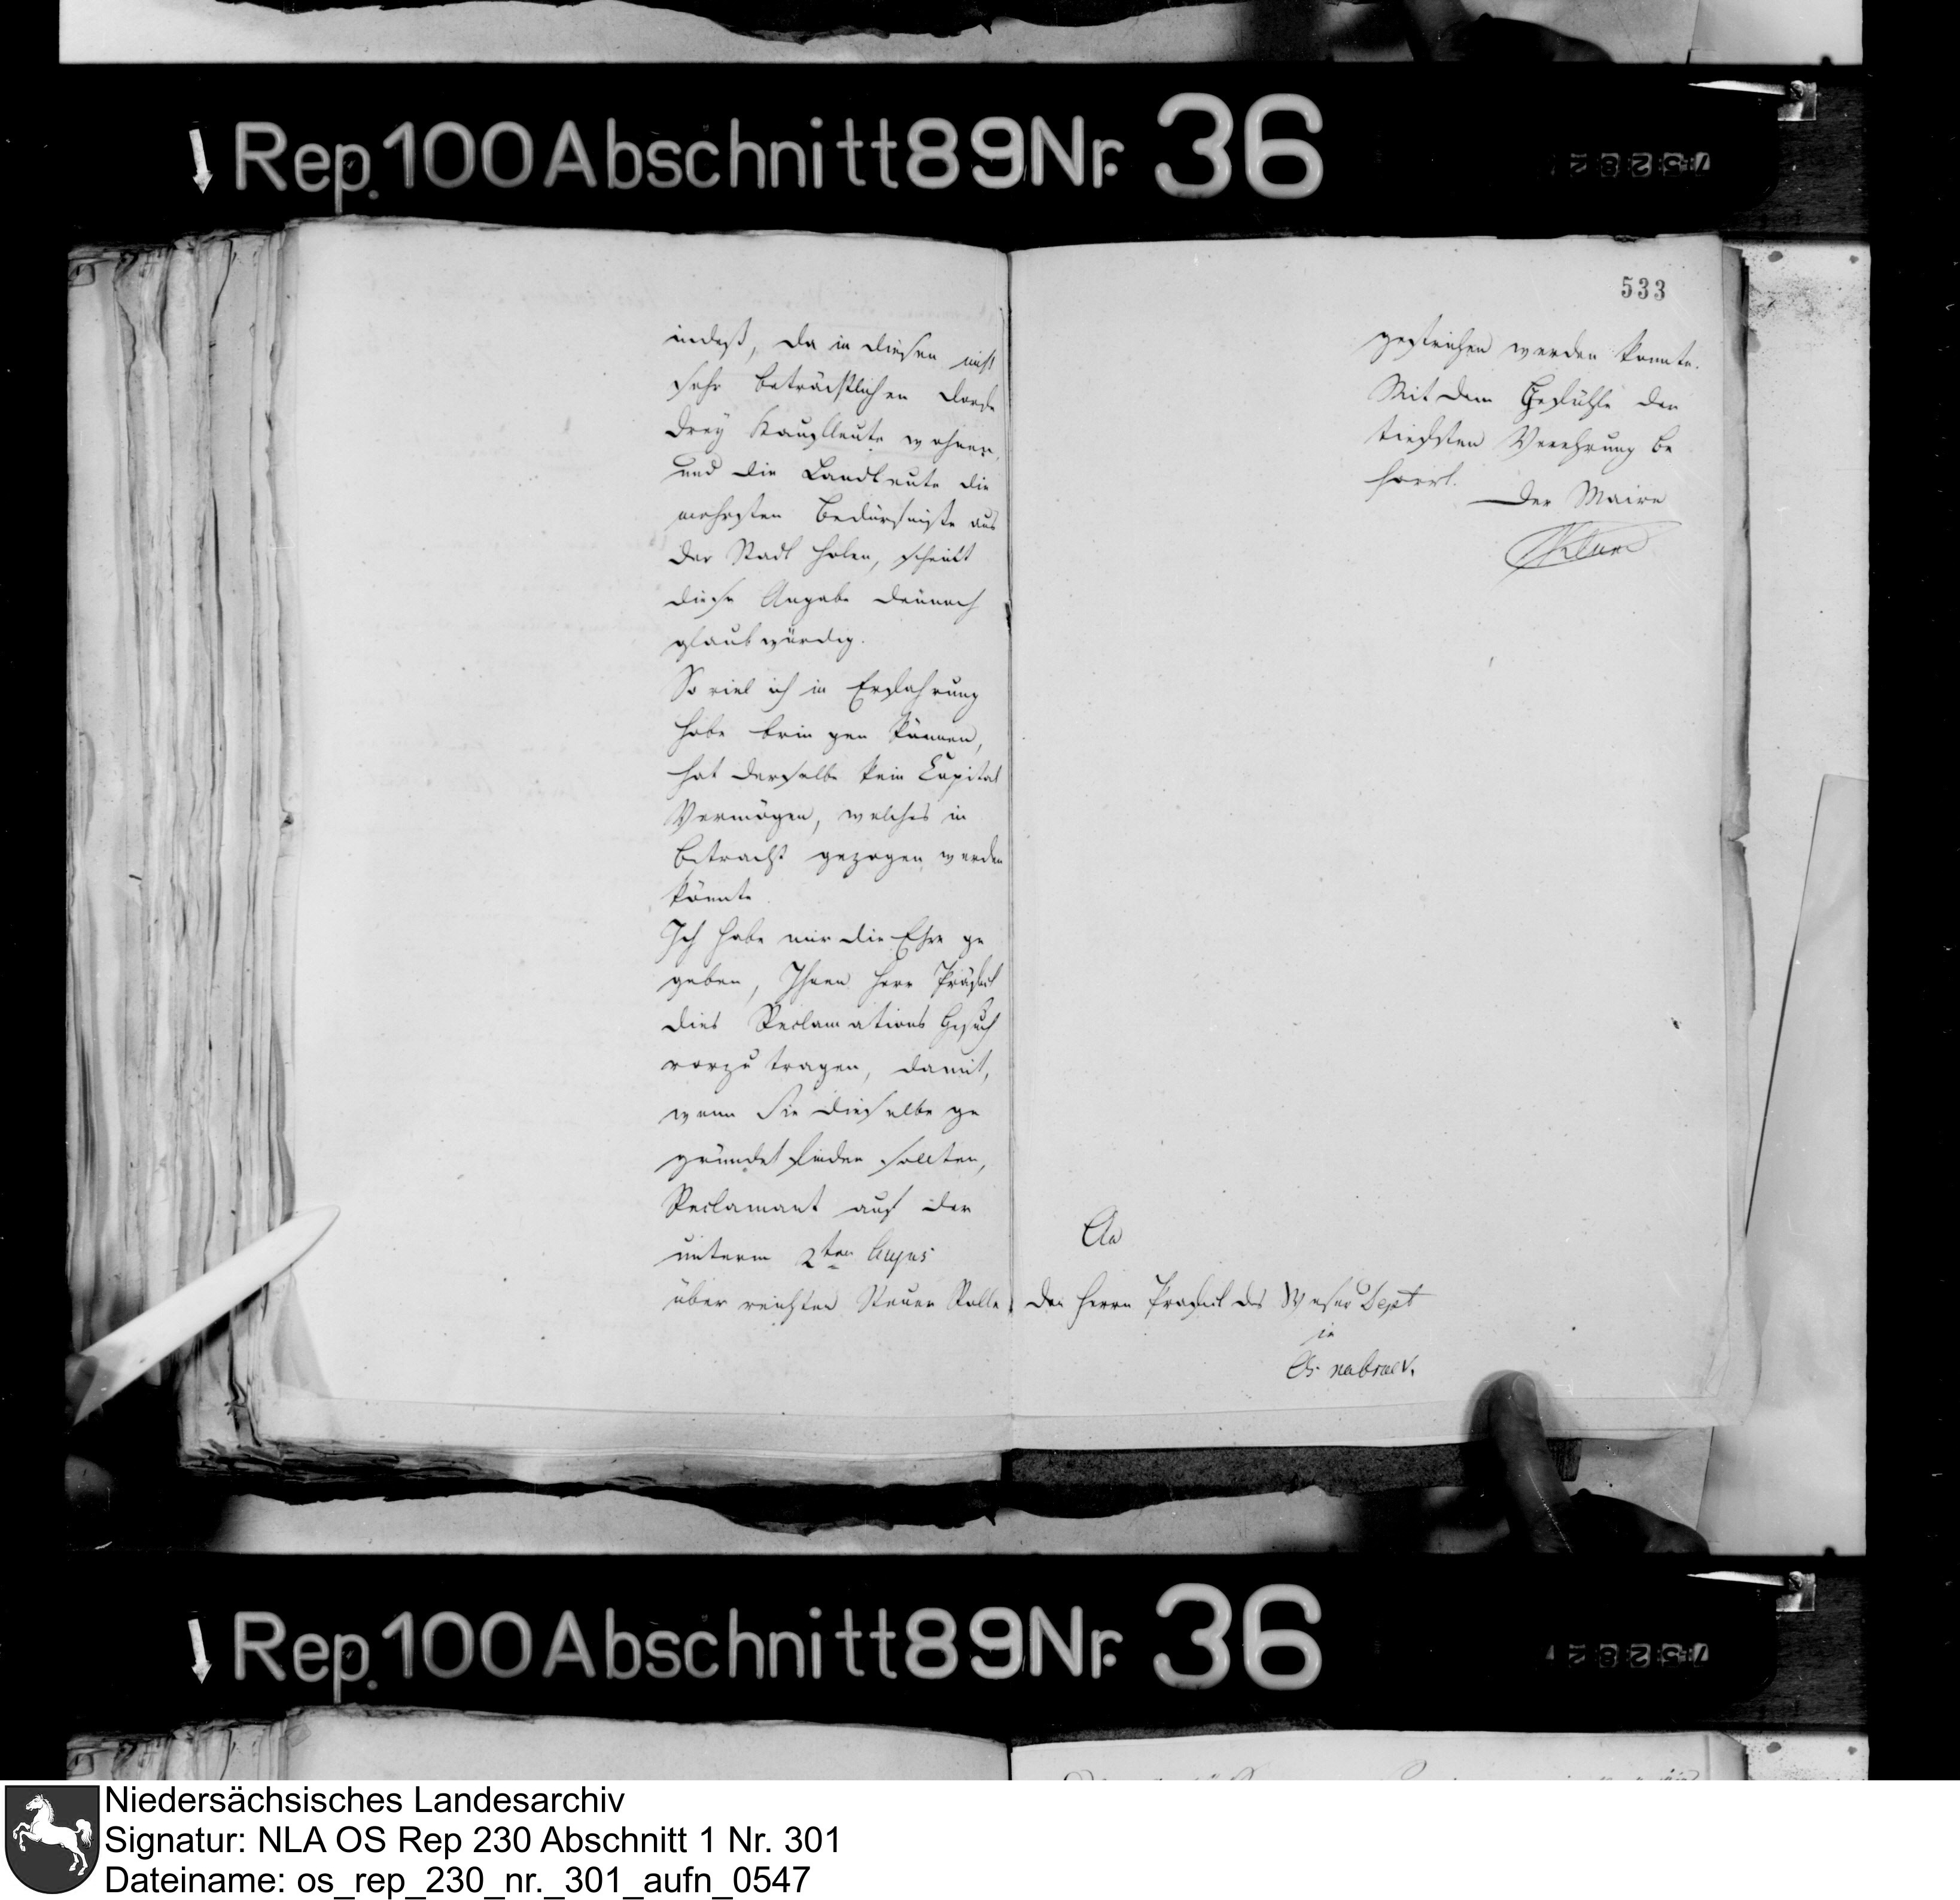 Rep.100 Abschnitt 89 Nr. 36
75282
indeß, da in diesen nicht
sehr beträchtlichen Dorfe
drey Kaufleute wohnen,
und die Landleute die
mehrsten Bedürfniße aus
der Stadt holen, scheint
diese Angabe dennoch
glaubwürdig.
So viel ich in Erfahrung
habe bringen können,
hat derselbe kein Capital
Vermögen, welches in
Betracht gezogen werden
könnte.
Ich habe mir die Ehre ge
geben, Ihnen Herr Präfect
dies Reclamations Gesuch
vorzutragen, damit,
wenn Sie dieselbe ge
gründet finden sollten,
Reclamant auf der
unterm 2ten hujus
überreichten Steuer Rolle
533
gestrichen werden konnte.
Mit dem Gefühle der
tiefsten Verehrung be
harrt.
Der Maire
An
den Herrn Präfect des Weser Dept
in
Osnabrück.
Rep.100 Abschnitt 89 Nr. 36
75282
Niedersächsisches Landesarchiv
Signatur: NLA OS Rep 230 Abschnitt 1 Nr. 301
Dateiname: os_rep_230_nr._301_aufn_0547